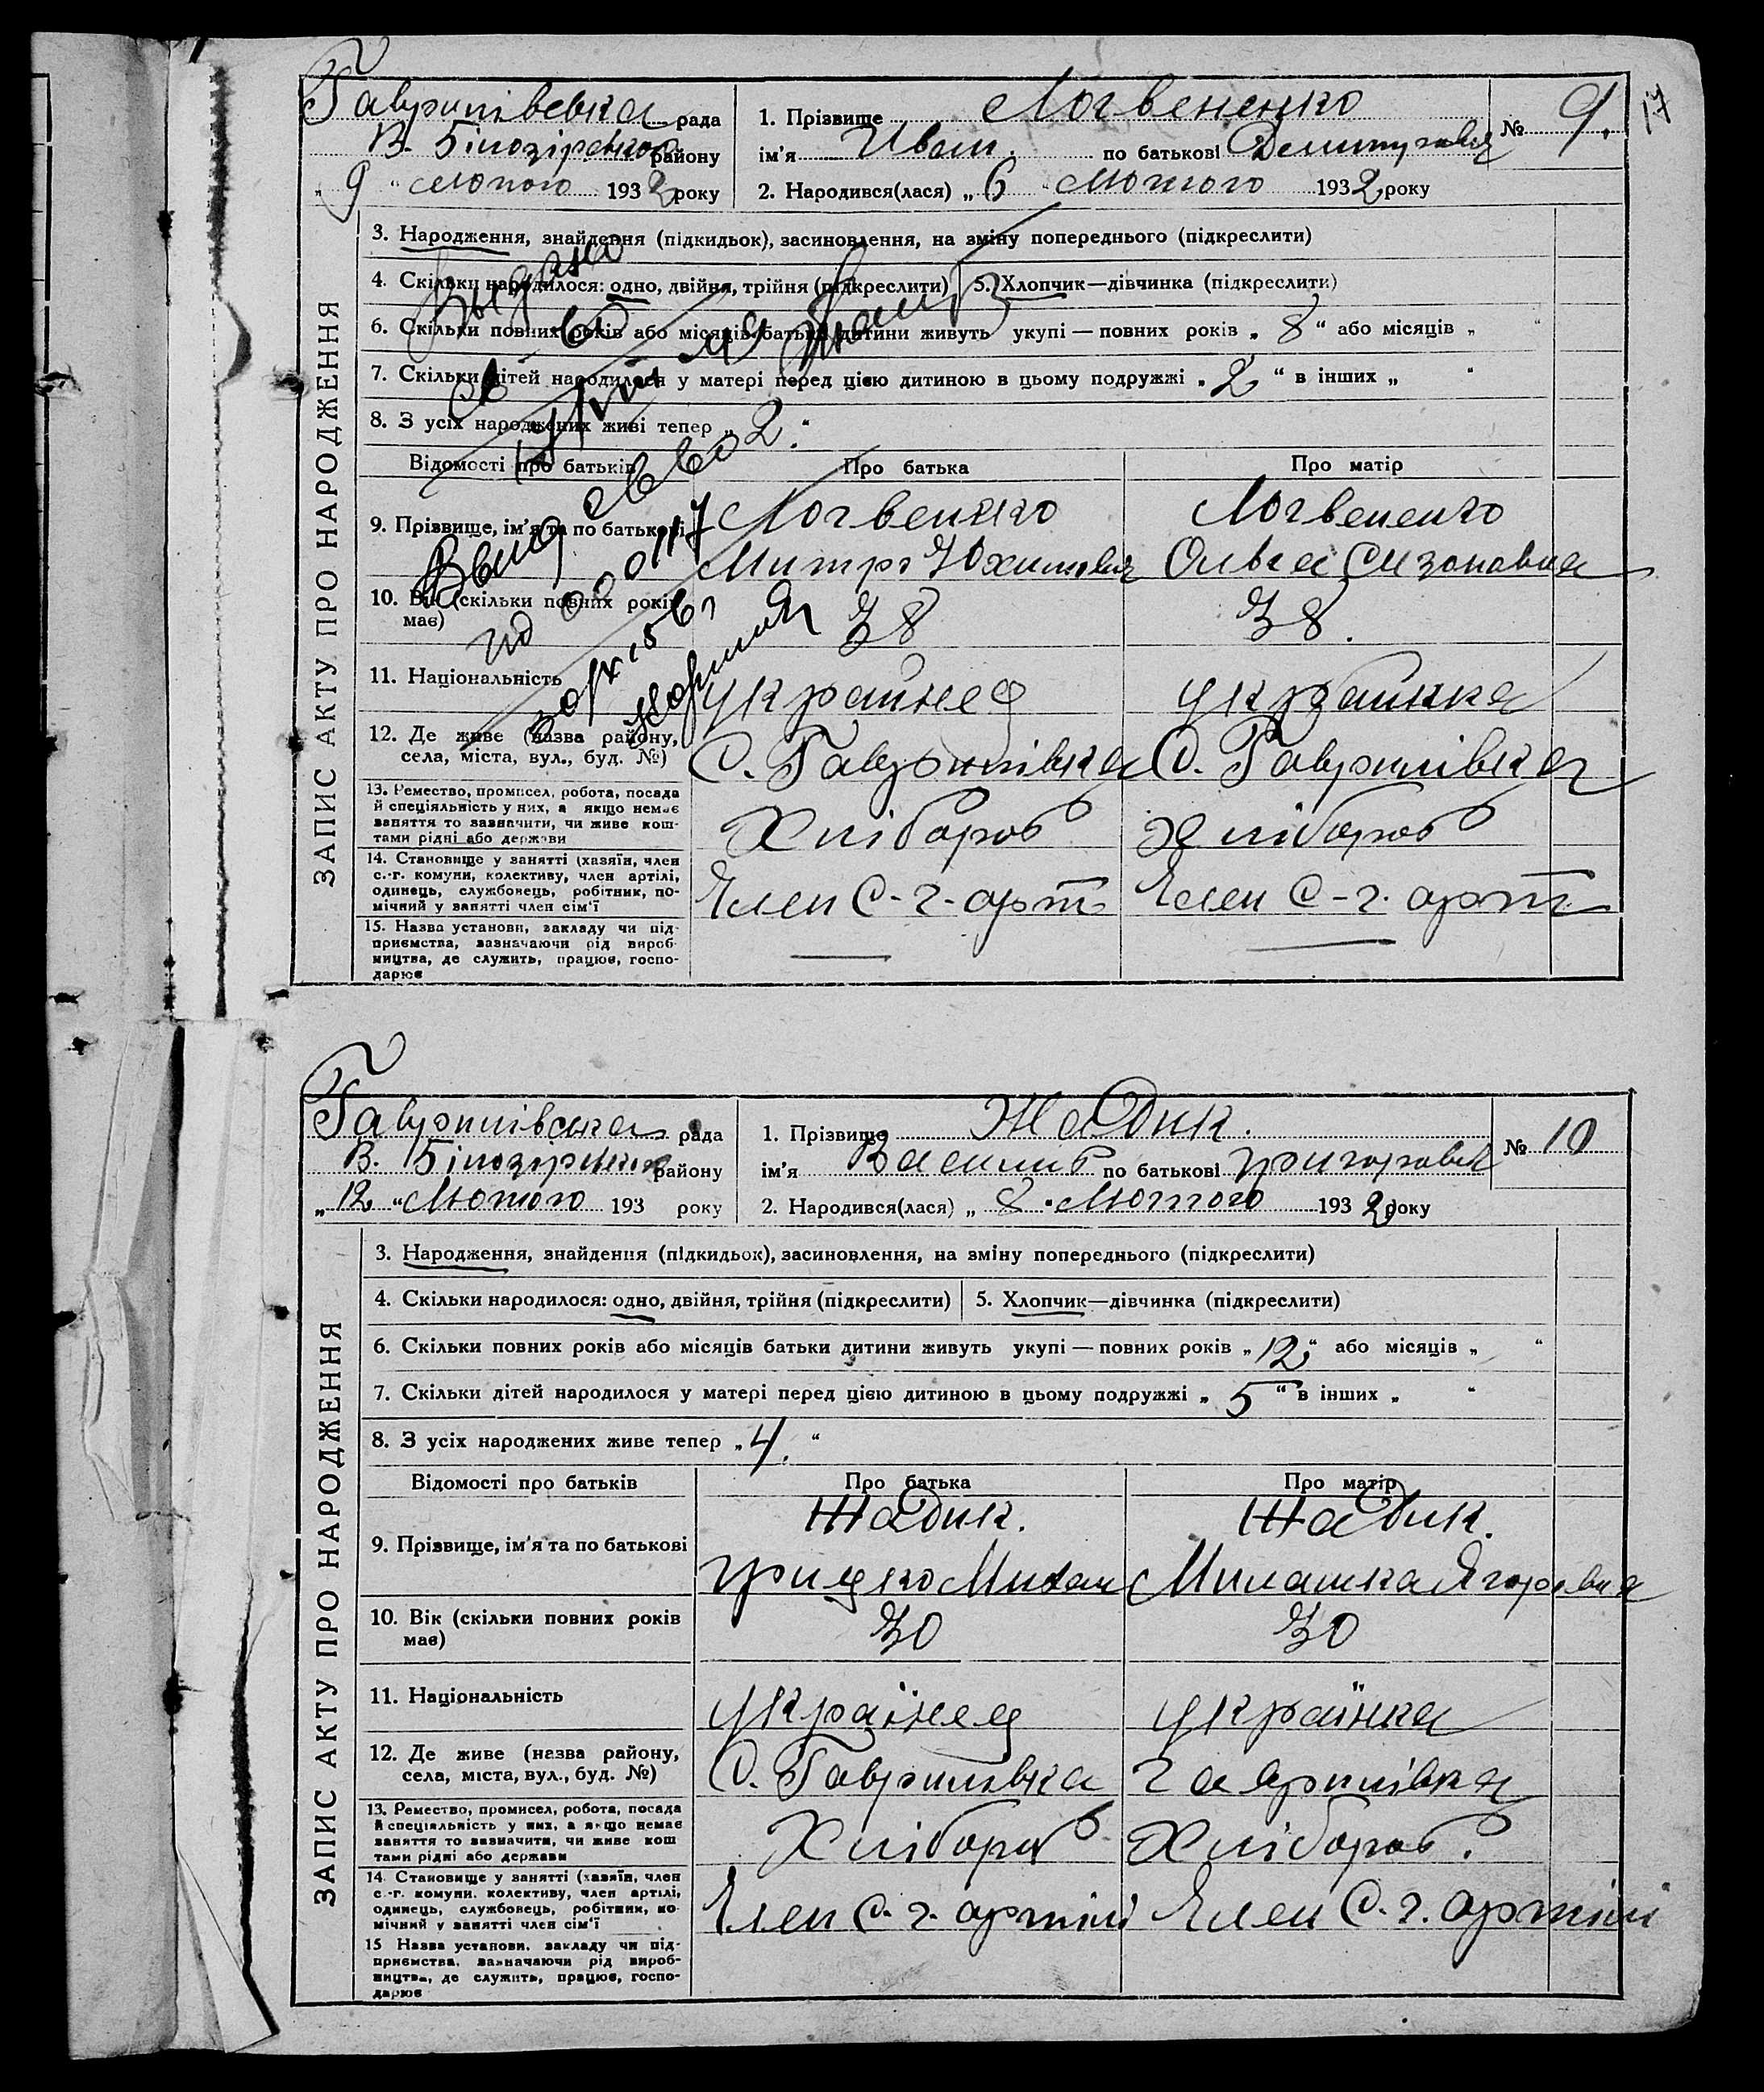 17
Гаврилівська рада
В. Білозірського району
„9“ Лютого 1932 року
1. Прізвище Логвененко
№ 9.
ім'я Иван. по батькові
2. Народився(лася) „6“ Лютого 1932 року
ЗАПИС АКТУ ПРО НАРОДЖЕННЯ
3. Народження, знайдення (підкидьок), засиновлення, на зміну попереднього (підкреслити)
4. Скільки народилося: одно, двійня, трійня (підкреслити)
5. Хлопчик—дівчинка (підкреслити)
6. Скільки повних років або місяців батьки дитини живуть укупі — повних років „8“ або місяців „ “
7. Скільки дітей народилося у матері перед цією дитиною в цьому подружжі „2“ в інших „ “
8. З усіх народжених живі тепер „2.“
Відомості про батьків
Про батька
Про матір
9. Прізвище, ім'я та по батькові
Логвененко
Митро Юхимович
Логвененко
Ольга Сизоновна
10. Вік (скільки повних років
має)
38
38.
11. Національність
українец
українка
12. Де живе (назва району,
села, міста, вул., буд. №)
С. Гаврилівка
С. Гаврилівка
13. Ремество, промисел, робота, посада
й спеціяльність у них, а якщо немає
заняття то зазначити, чи живе кош-
тами рідні або держави
Хлібороб
Хлібороб
14. Становище у занятті (хазяїн, член
с.-г. комуни, колективу, член артілі,
одинець, службовець, робітник, по-
мічний у занятті член сім'ї
Член С-г-арт
Член С-г. арт
15. Назва установи, закладу чи під-
приємства, зазначаючи рід вироб-
ництва, де служить, працює, госпо-
дарює
Гаврилівська рада
В. Білозірського району
„12“ Лютого 193 року
1. Прізвище Жадик.
№ 10
ім'я Василь по батькові Григорович
2. Народився(лася) „8“ Лютого 1932 року
ЗАПИС АКТУ ПРО НАРОДЖЕННЯ
3. Народження, знайдення (підкидьок), засиновлення, на зміну попереднього (підкреслити)
4. Скільки народилося: одно, двійня, трійня (підкреслити)
5. Хлопчик—дівчинка (підкреслити)
6. Скільки повних років або місяців батьки дитини живуть укупі — повних років „12“ або місяців „ “
7. Скільки дітей народилося у матері перед цією дитиною в цьому подружжі „5“ в інших „ “
8. З усіх народжених живе тепер „4.“
Відомості про батьків
Про батька
Про матір
9. Прізвище, ім'я та по батькові
Жадик.
Грицко Михай
Жадик.
Милашка Ягоровна
10. Вік (скільки повних років
має)
30
30
11. Національність
українец
українка
12. Де живе (назва району,
села, міста, вул., буд. №)
С. Гаврилівка
Гаврилівка
13. Ремество, промисел, робота, посада
й спеціяльність у них, а якщо немає
заняття то зазначити, чи живе кош
тами рідні або держави
Хлібороб
Хлібороб.
14. Становище у занятті (хазяїн, член
с.-г. комуни, колективу, член артілі,
одинець, службовець, робітник, по-
мічний у занятті член сім'ї
Член С. г. артілі
Член С. г. артілі
15 Назва установи, закладу чи під-
приємства, зазначаючи рід вироб-
ництва, де служить, працює, госпо-
дарює